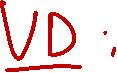 VD :